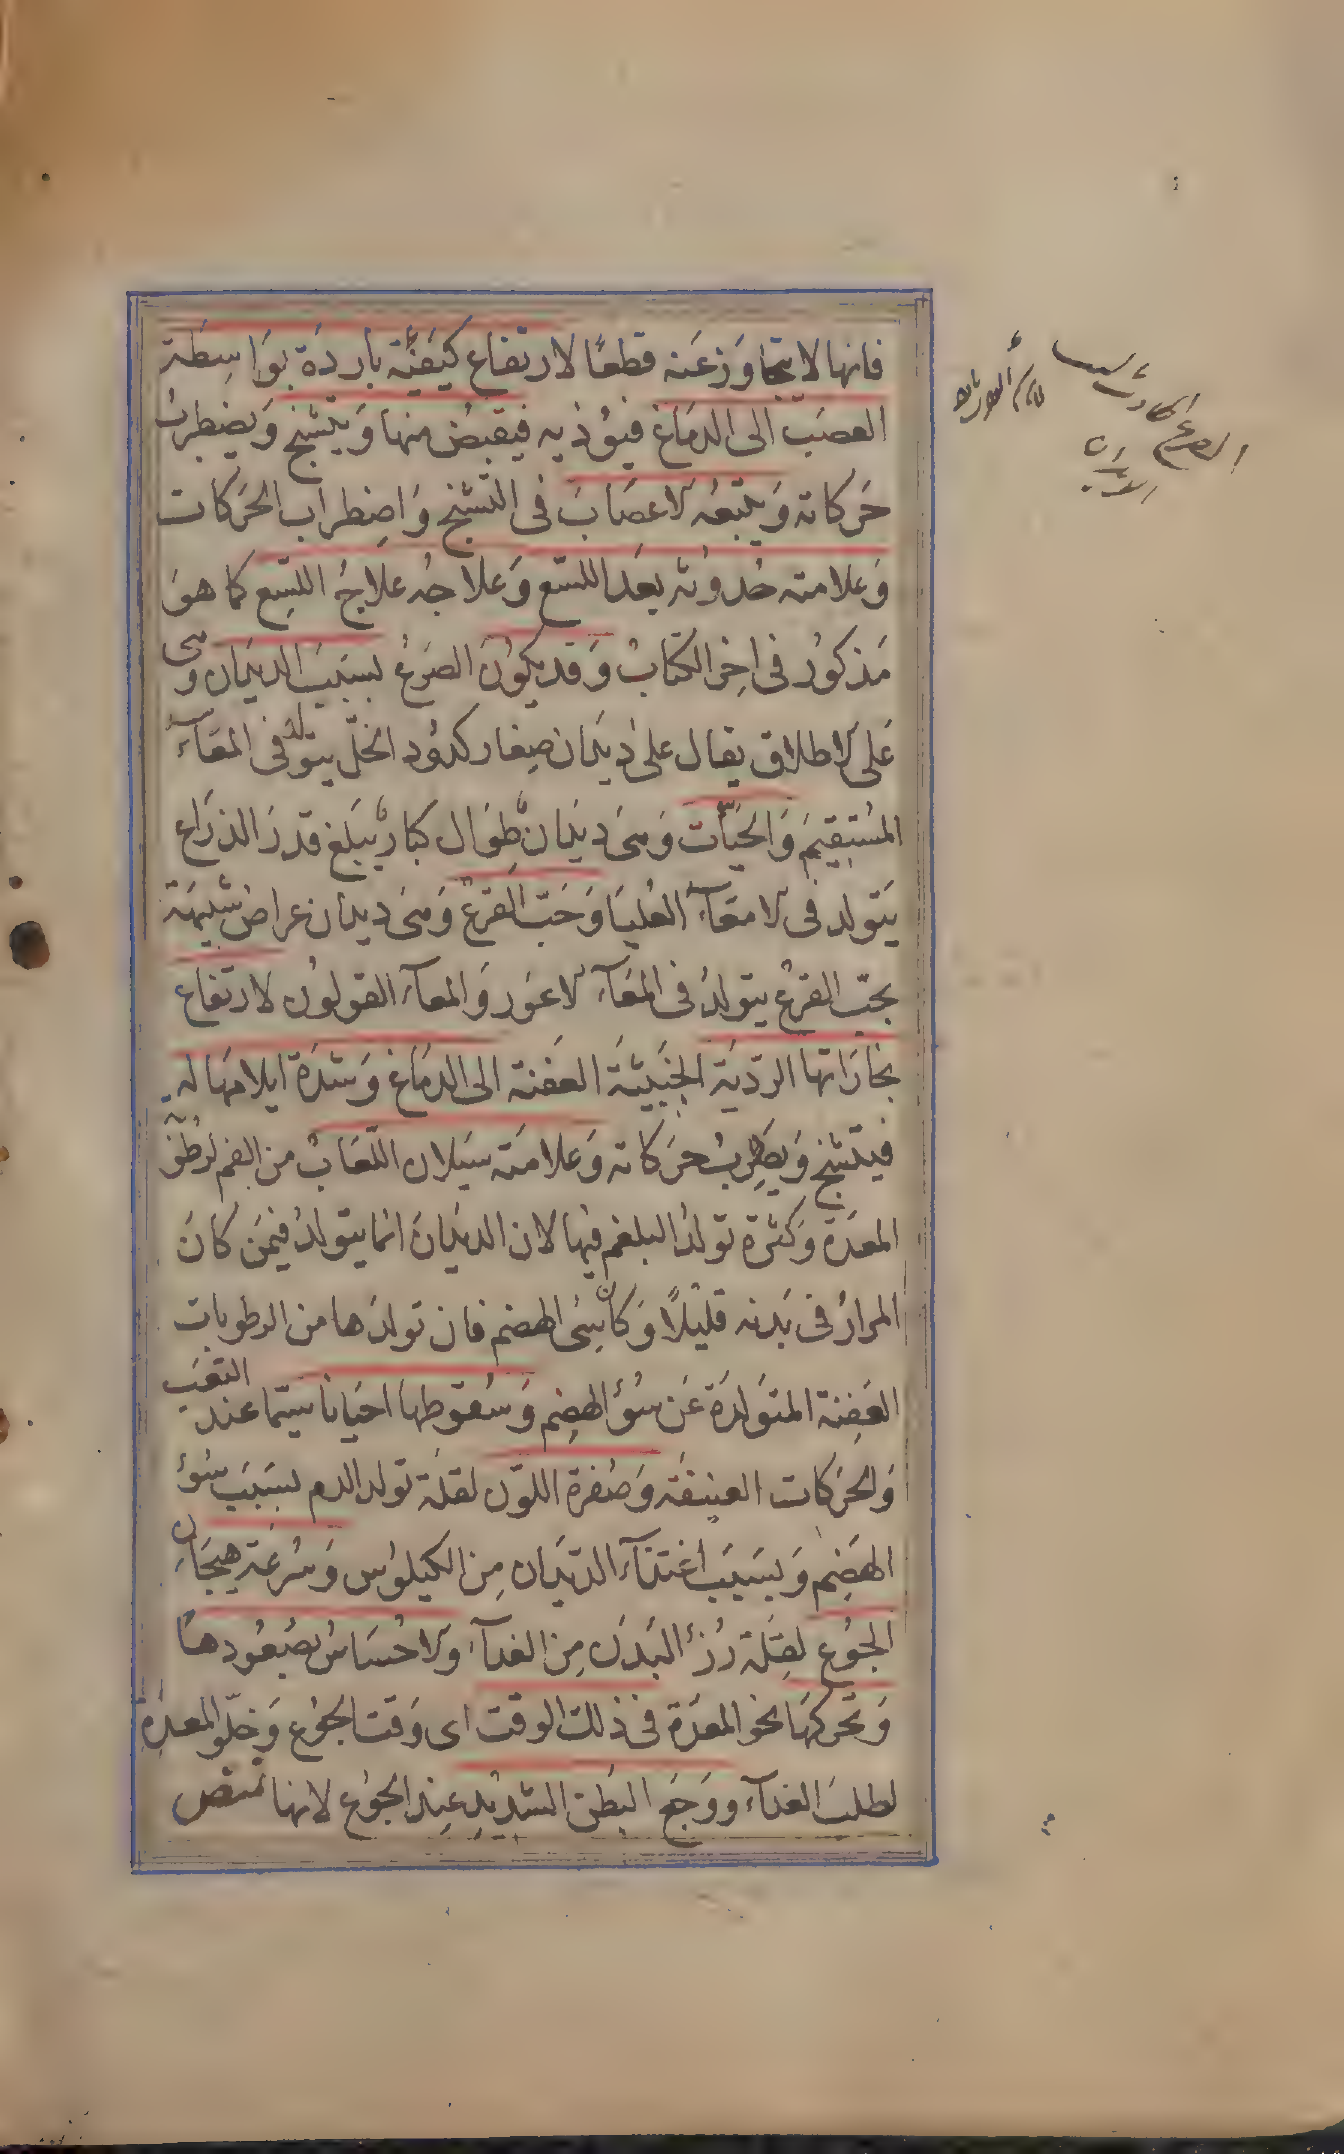 فانها لا يتجاوَزعَنه قطعًا لارتفاع كيَفيَّة باردَة بوَاسِطَة
العصَب الى الدمَاغ فيؤذيه فيقبضُ منها وَيتشنج وَيضطربُ
حَركاته وَيتبعُه لاعصَابَ فى التشنج وَاضِطراب الحَركات
وَعلامته حُدوثه بعَد اللسّع وَعلاجُه علَاجُ اللسِّع كما هوَ
مَذكورُ فى اخِر الكتابُ وَقد يكوُن الصَرعُ بسَبَب الديَدان وَهى
عَلى لاطلاق يقال على دِيَدان صِغار كدوُد الخلّ يتولدُ فى المعَآء
المسُتقيَم وَالحيَّات وَهىَ ديَدانٌ طِوَال كبارٌ يبَلغ قدرَ الذرَاع
يَتولد فى لامعَآء العُليَا وَحَبّ القرعْ وَهىَ ديدان عراضُ شبيهَة
بحَبّ القرعُ يتولدُ فى المعَآء لاعوَر وَالمعآء القولوُن لارتفاع
بخارَاتها الرّديَة الخَبيثَة العَفنة الى الدمَاغ وَشدَة ايلامهَا له
فيتشنج وَيضطِربُ حَركاته وَعلامَته سَيلان اللّعَابُ من الفم لرطوبَة
المعدَة وَكثرة تولدُ البلغم فيها لان الديَدانَ انما يتولدُ فيمَن كانَ
المرارُ فى بَدنه قليلًا وَكانَ سِىَ الهضم فان تولدَها من الرطوبات
العَفِنة المتوَلدَة عَن سُوُء الهضِم وَسُقوطها احيَانا سيّما عند التعَب
وَالحَركات العنيفَة وَصُفرة اللوّن لقلة تولد الدم بسَبَب سُوُء
الهَضِم وَبسَبَب اغتذآء الديَدان مِن الكيلوُس وَسُرعَة هيجَان
الجوُع لقِلة رُزءَ البَدَن مِن الغدآء وَلاحُسَاسُ بصُعُودهَا
وَتحَركهَا نحو المعدَة فى ذلك الوقت اى وَقت الجوُع وَخلّو المعدِة
لطلبَ الغدآء ووَجَع البَطن الشديْدِ عِند الجوُع لانها تمتص
الصرع الحادث بسبب
الديدان